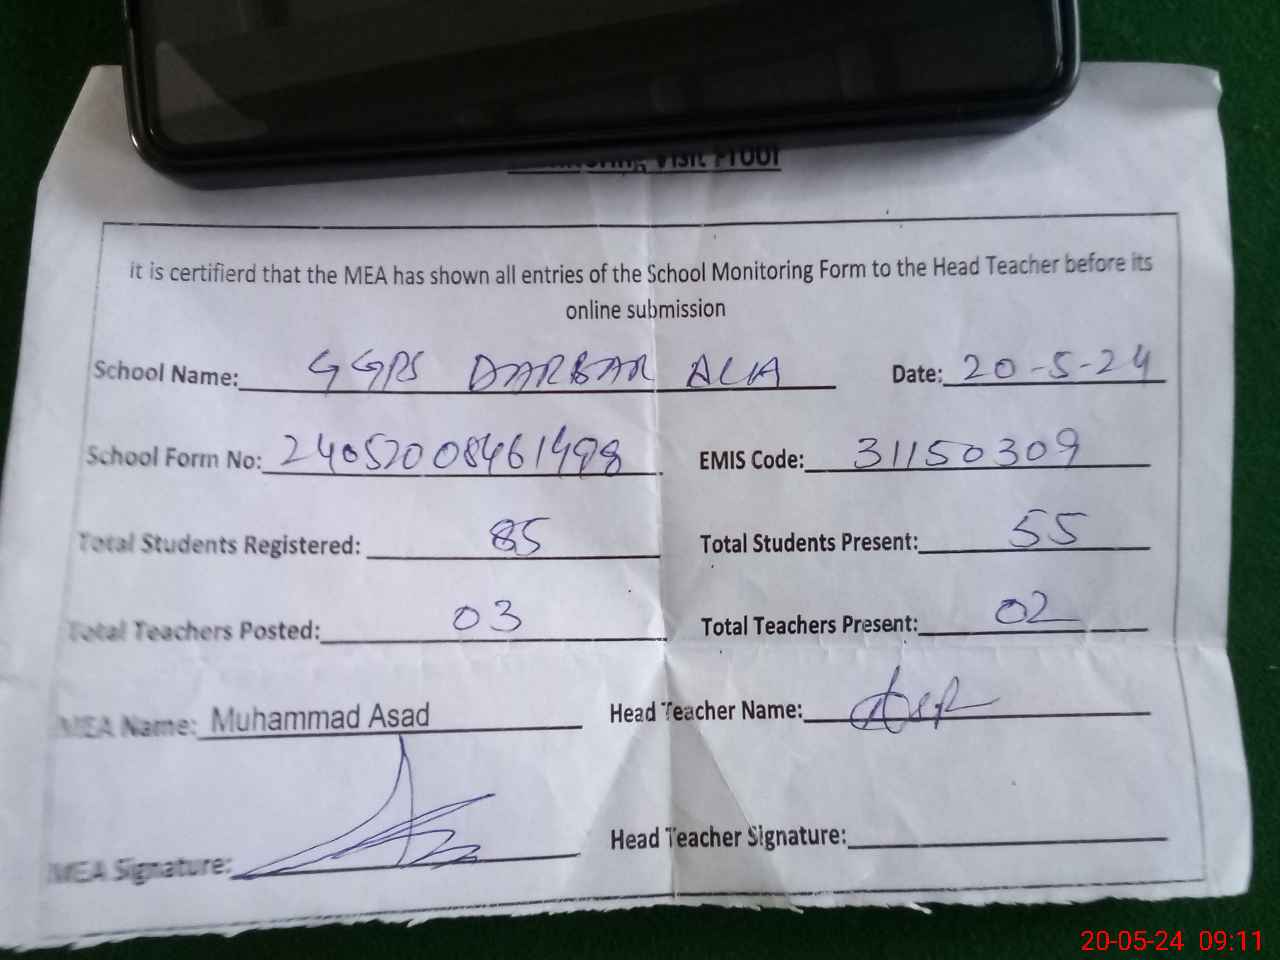 Visit Proof
it is certifierd that the MEA has shown all entries of the School Monitoring Form to the Head Teacher before its
online submission
School Name: GGPS DARBAR ALIA Date: 20-5-24
School Form No: 24052008461498 EMIS Code: 31150309
Total Students Registered: 85 Total Students Present: 55
Total Teachers Posted: 03 Total Teachers Present: 02
MEA Name: Muhammad Asad Head Teacher Name:
MEA Signature: Head Teacher Signature:
20-05-24 09:11